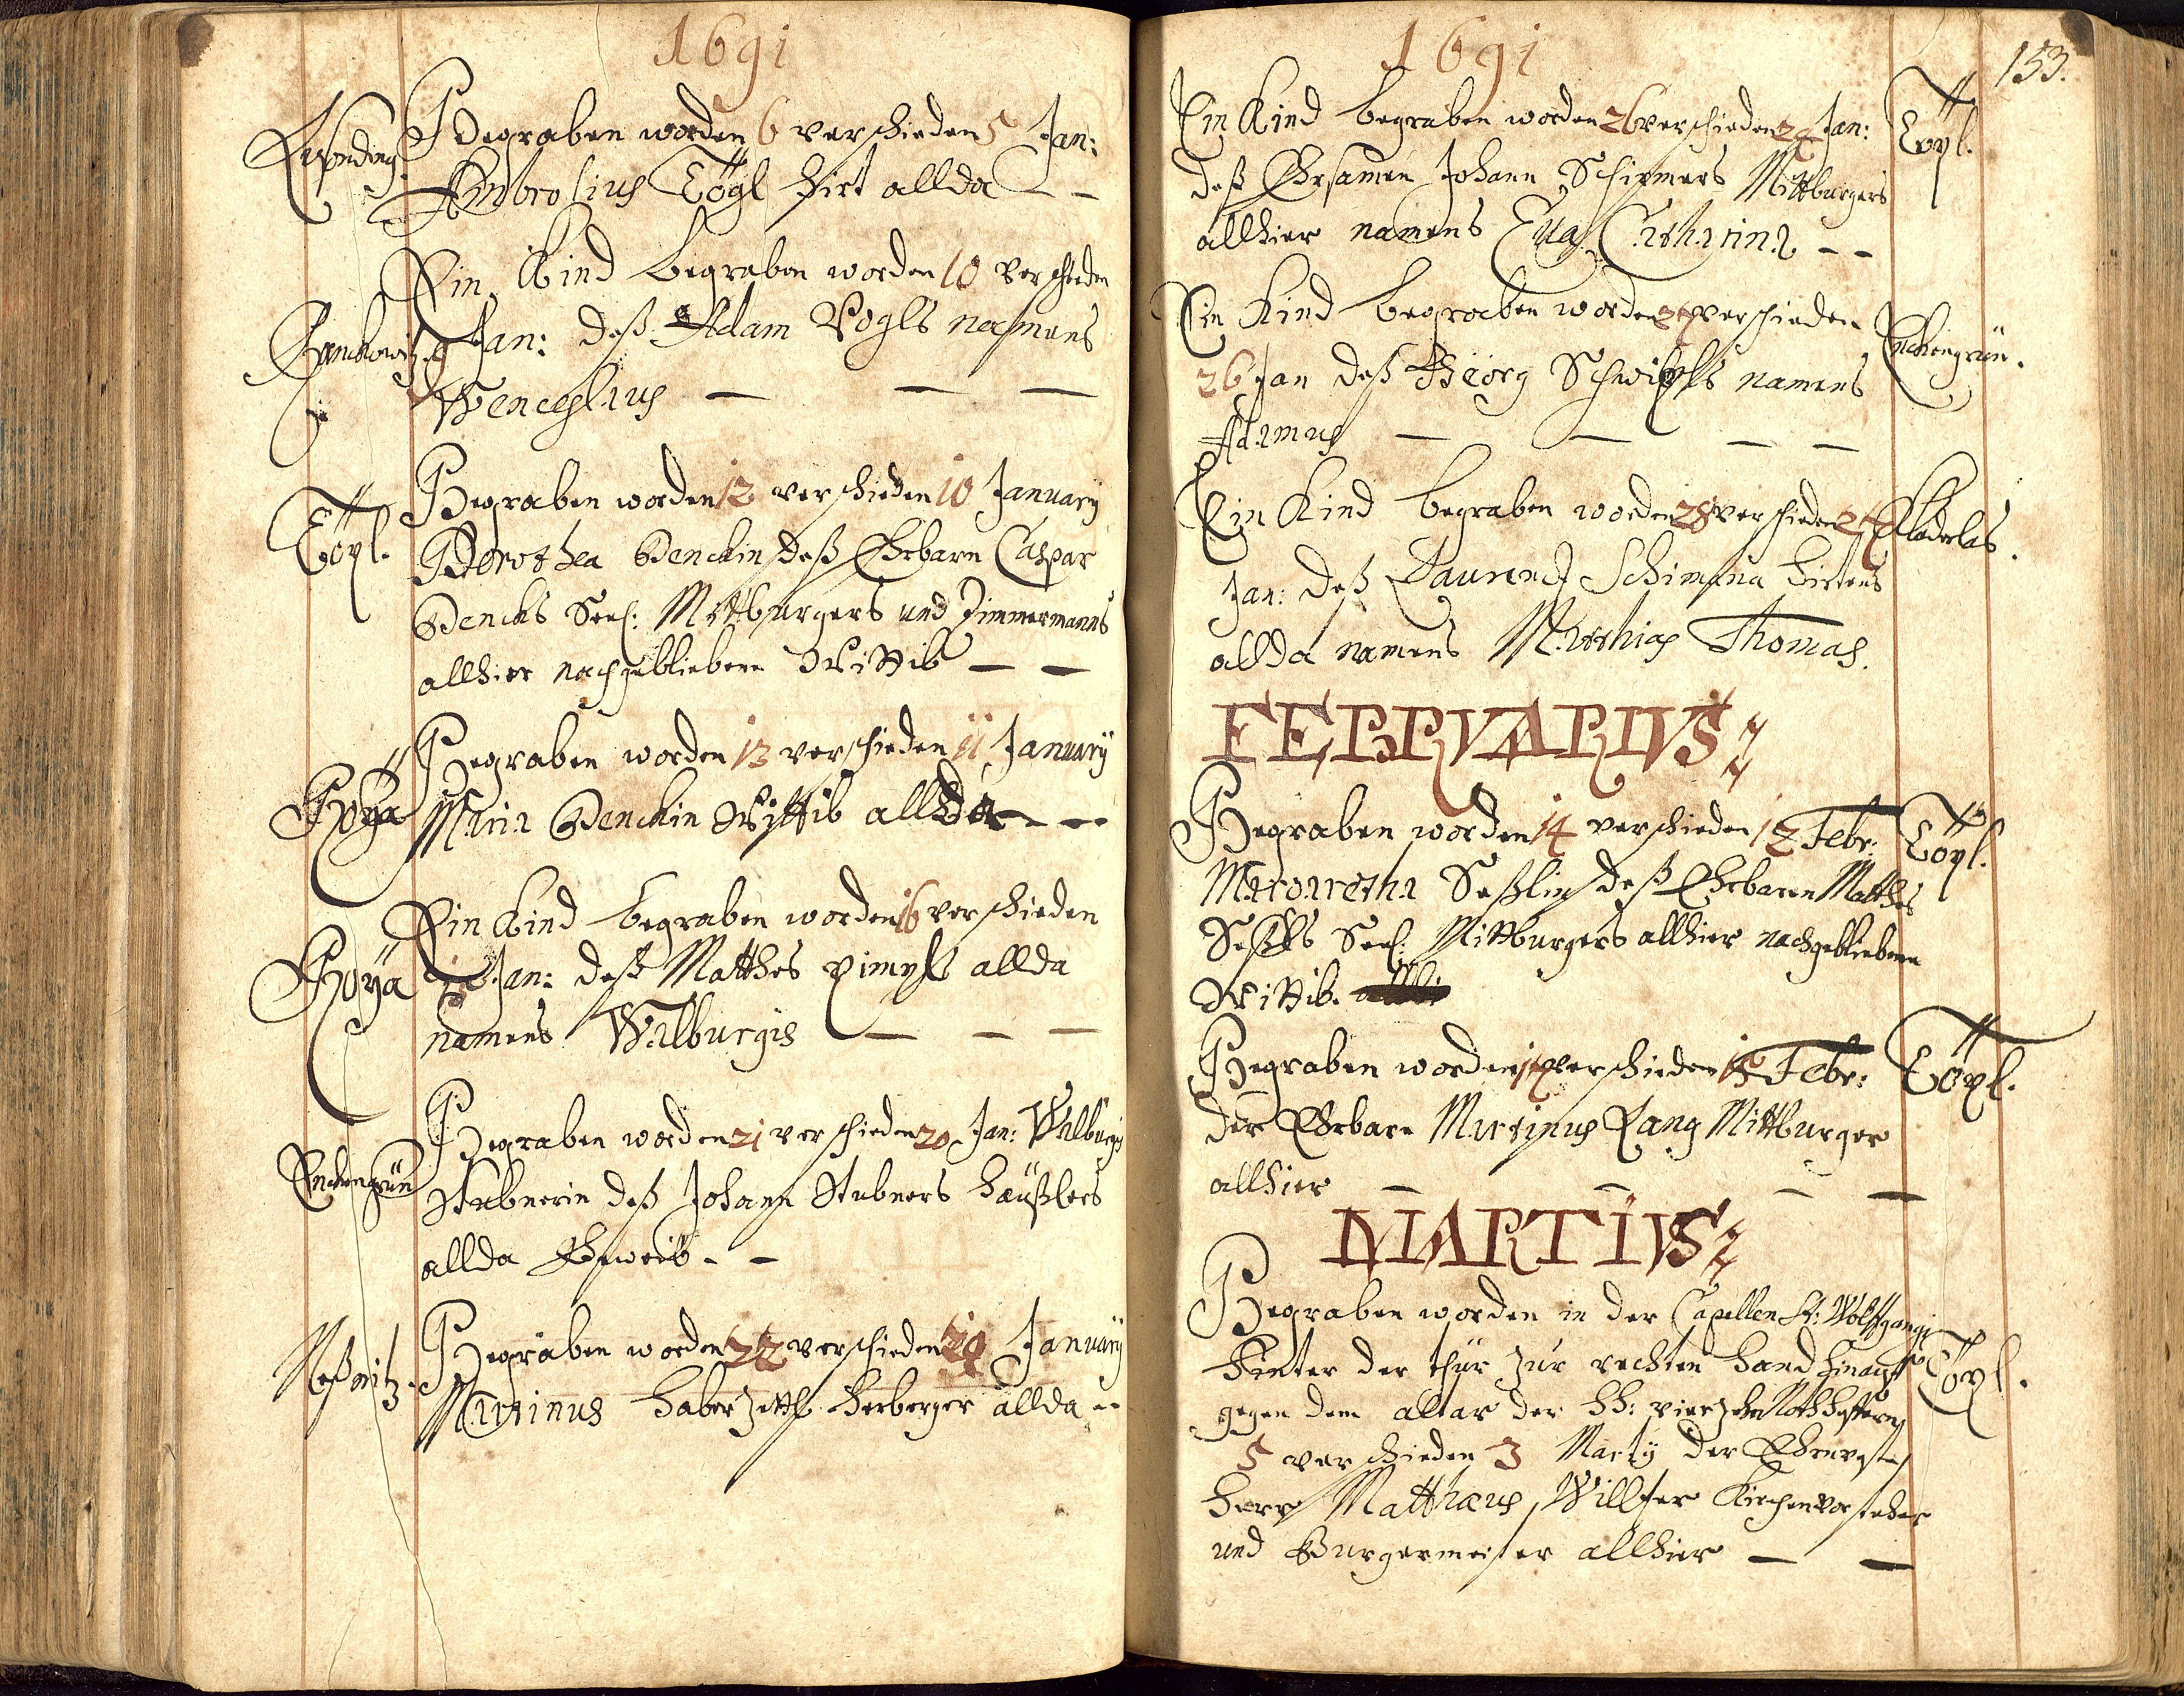 1691
Begraben worden 6 verschieden 5 Jan:
Ambrosius Tögl hirt allda
Ein Kind begraben worden 10 verschieden
9 Jan: deß Adam Vogls namens
Wenceslaus
Töpl.
Begraben worden 12 verschieden 10 January
Dorothea Denckin deß Ehrbarn Caspar
Dencks Seel: Mittburgers und Zimmermanns
allhier nachgebliebene Wittib
Hoÿa
Begraben worden 13 verschieden 11 January
Maria Denckin Wittib allda
Ein Kind begraben worden 16 verschieden
Hoÿa
Jan: deß Matthes allda
namens Walburgis
Begraben worden 21 verschieden 20 Jan: Walburgis
Enckengrün
Stubnerin deß Johann Stubners häußlers
allda Eheweib
Begraben worden 22 verschieden January
Martinus Haberzettl herberger allda
1691
153.
Ein Kind begraben worden 26 verschieden Jan:
Töpl.
deß Ehrsamen Johann Schirmers Mittburgers
allhier namens Eua Catharina
Ein Kind begraben worden 27 verschieden
Enckengrün.
26 Jan deß Georg namens
Adamus
Ein Kind begraben worden 28 verschieden 27
Jan: deß Laurenz Schimana hirtens
allda namens Matthias Thomas.
FEBRVARIVS
Begraben worden 14 verschieden 12 Febr:
Töpl.
Margaretha Seßlin deß Ehrbaren Matthes
Seßls Seel: Mittburgers allhier nachgebliebene
Wittib.
Begraben worden 17 verschieden 15 Febr:
Töpl.
der Ehrbare Martinus Lang Mittburger
allhier
MARTIVS
Begraben worden in der Capellen St: Wolffgangi
hinter der thür zur rechten hand hinauff
Töpl.
gegen dem altar der HH: vierzehn Nothhelffern
5 verschieden 3 Marty der Ehrnveste
Herr Matthæus Willfer Kirchenvorsteher
und Burgermeister allhier